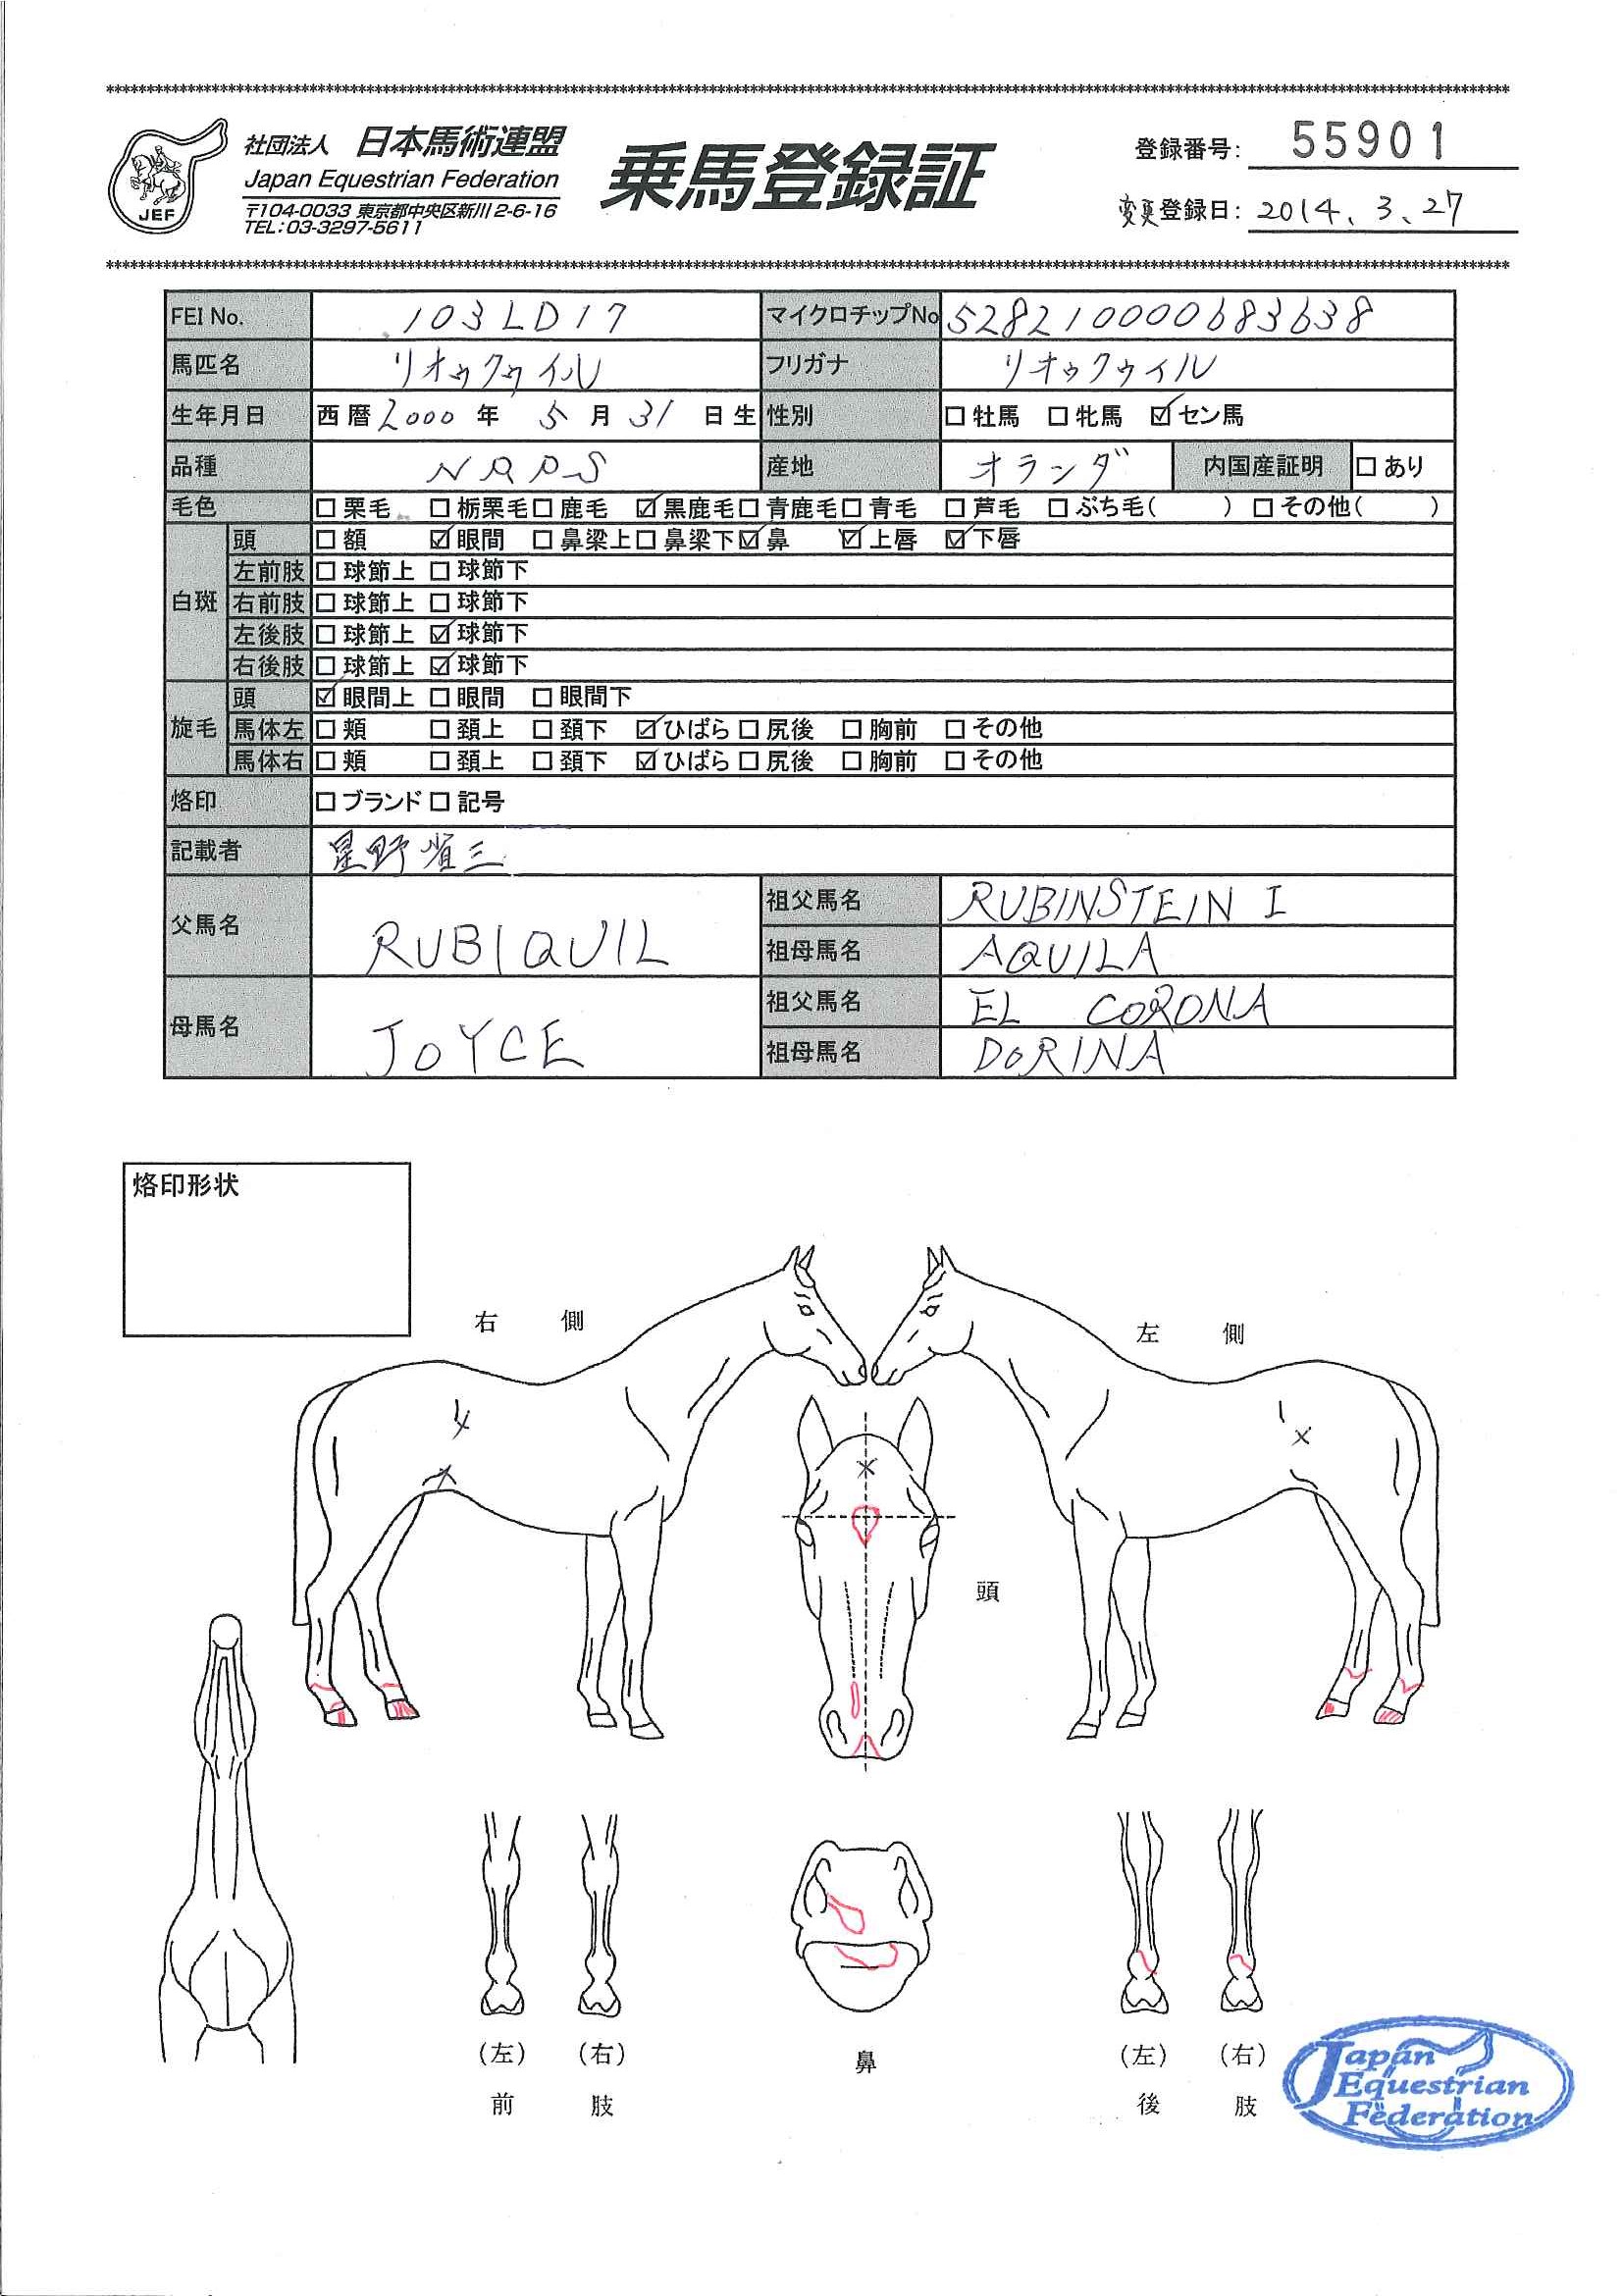 ********************************************************************************
社団法人 日本馬術連盟
Japan Equestrian Federation
〒104-0033 東京都中央区新川2-6-16
TEL:03-3297-5611
JEF
乗馬登録証
登録番号: 55901
変更登録日: 2014.3.27
********************************************************************************
FEI No. 103LD17 マイクロチップNo 528210000683638
馬匹名 リオゥクゥイル フリガナ リオゥクゥイル
生年月日 西暦 2000 年 5 月 31 日生 性別 □ 牡馬 □ 牝馬 ☑ セン馬
品種 NRPS 産地 オランダ 内国産証明 □ あり
毛色 □ 栗毛 □ 栃栗毛 □ 鹿毛 ☑ 黒鹿毛 □ 青鹿毛 □ 青毛 □ 芦毛 □ ぶち毛( ) □ その他( )
白斑 頭 □ 額 ☑ 眼間 □ 鼻梁上 □ 鼻梁下 ☑ 鼻 ☑ 上唇 ☑ 下唇
左前肢 □ 球節上 □ 球節下
右前肢 □ 球節上 □ 球節下
左後肢 □ 球節上 ☑ 球節下
右後肢 □ 球節上 ☑ 球節下
旋毛 頭 ☑ 眼間上 □ 眼間 □ 眼間下
馬体左 □ 頬 □ 頚上 □ 頚下 ☑ ひばら □ 尻後 □ 胸前 □ その他
馬体右 □ 頬 □ 頚上 □ 頚下 ☑ ひばら □ 尻後 □ 胸前 □ その他
烙印 □ ブランド □ 記号
記載者 星野省三
父馬名 RUBIQUIL 祖父馬名 RUBINSTEIN I
祖母馬名 AQUILA
母馬名 JOYCE 祖父馬名 EL CORONA
祖母馬名 DORINA
烙印形状
右側
左側
頭
(左) (右)
前肢
鼻
(左) (右)
後肢
Japan
Equestrian
Federation